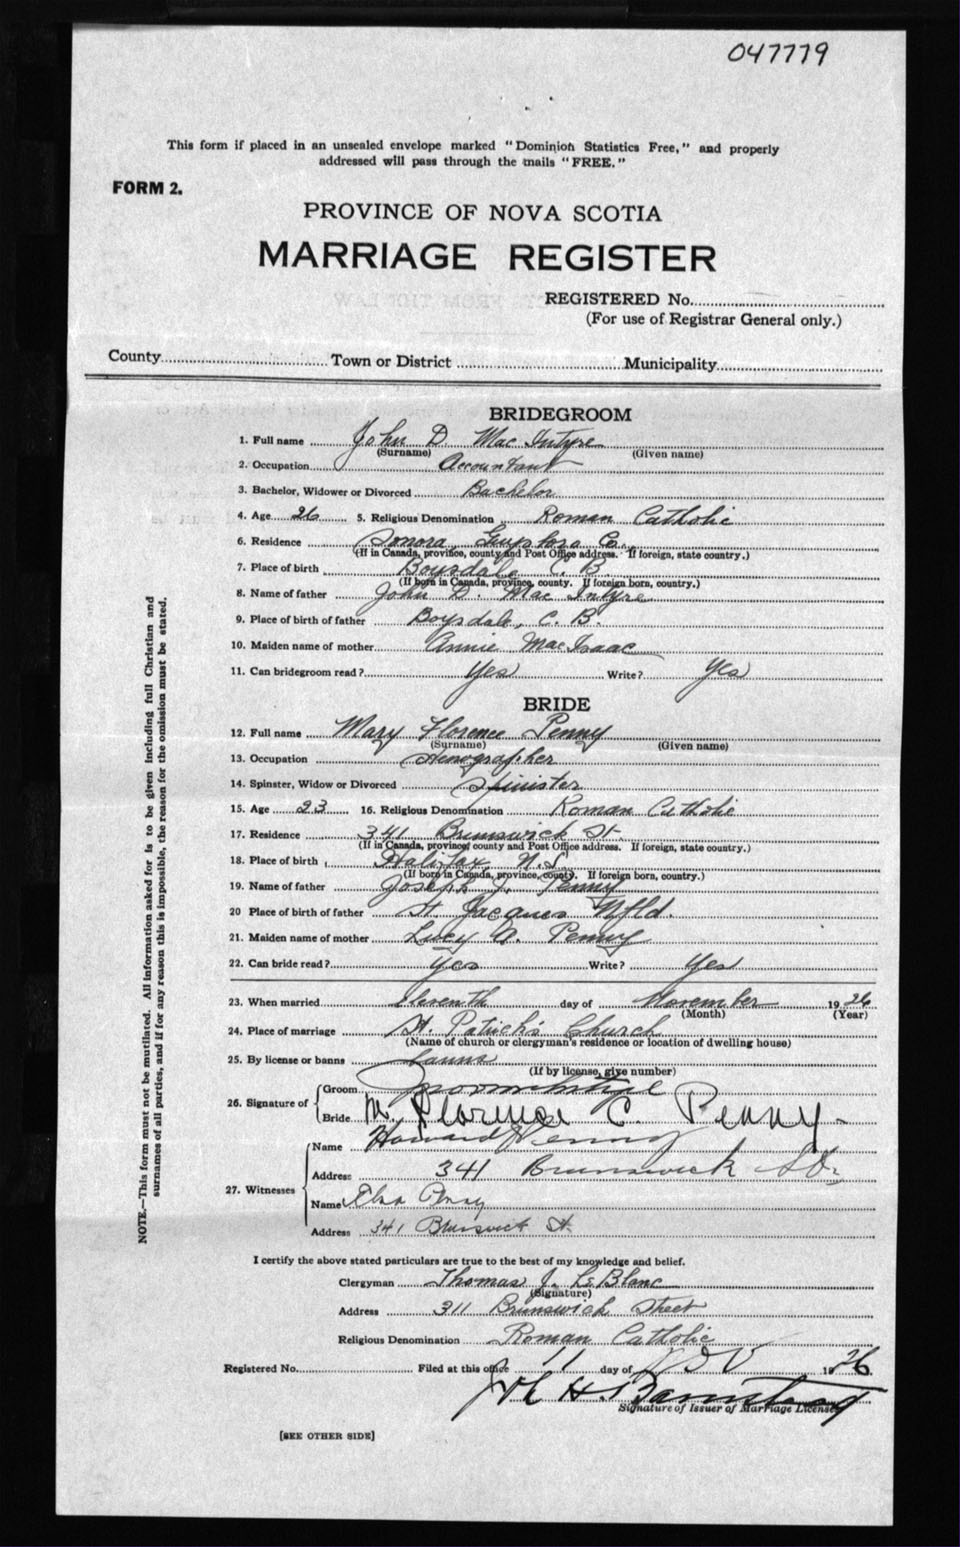 047779
This form if placed in an unsealed envelope marked "Dominion Statistics Free," and properly
addressed will pass through the mails "FREE."
FORM 2.
PROVINCE OF NOVA SCOTIA
MARRIAGE REGISTER
REGISTERED No.
(For use of Registrar General only.)
County Town or District Municipality
BRIDEGROOM
1. Full name John D Mac Intyre
(Surname) (Given name)
2. Occupation Accountant
3. Bachelor, Widower or Divorced Bachelor
4. Age 26 5. Religious Denomination Roman Catholic
6. Residence Sonora, Guysboro Co.
(If in Canada, province, county and Post Office address. If foreign, state country.)
7. Place of birth Boysdale C. B.
(If born in Canada, province, county. If foreign born, country.)
8. Name of father John D. Mac Intyre
9. Place of birth of father Boysdale, C. B.
10. Maiden name of mother Annie MacIsaac
11. Can bridegroom read? Yes Write? Yes
BRIDE
12. Full name Mary Florence Penny
(Surname) (Given name)
13. Occupation Stenographer
14. Spinster, Widow or Divorced Spinister
15. Age 23 16. Religious Denomination Roman Catholic
17. Residence 341 Brunswick St
(If in Canada, province, county and Post Office address. If foreign, state country.)
18. Place of birth Halifax, N.S.
(If born in Canada, province, county. If foreign born, country.)
19. Name of father Joseph J. Penny
20 Place of birth of father St. Jacques Nfld.
21. Maiden name of mother Lucy A. Penny
22. Can bride read? Yes Write? Yes
23. When married Eleventh day of November 1926
(Month) (Year)
24. Place of marriage St. Patrick's Church
(Name of church or clergyman's residence or location of dwelling house)
25. By license or banns banns
(If by license, give number)
26. Signature of
Groom
Bride M. Florence C. Penny
27. Witnesses
Name Howard Penny
Address 341 Brunswick St.
Name Elsa Penny
Address 341 Brunswick St.
I certify the above stated particulars are true to the best of my knowledge and belief.
Clergyman Thomas J. LeBlanc
(Signature)
Address 311 Brunswick Street
Religious Denomination Roman Catholic
Registered No. Filed at this office 11 day of Nov 1926
H. Barnstead
Signature of Issuer of Marriage Licenses
[SEE OTHER SIDE]
NOTE.—This form must not be mutilated. All information asked for is to be given including full Christian and
surnames of all parties, and if for any reason this is impossible, the reason for the omission must be stated.